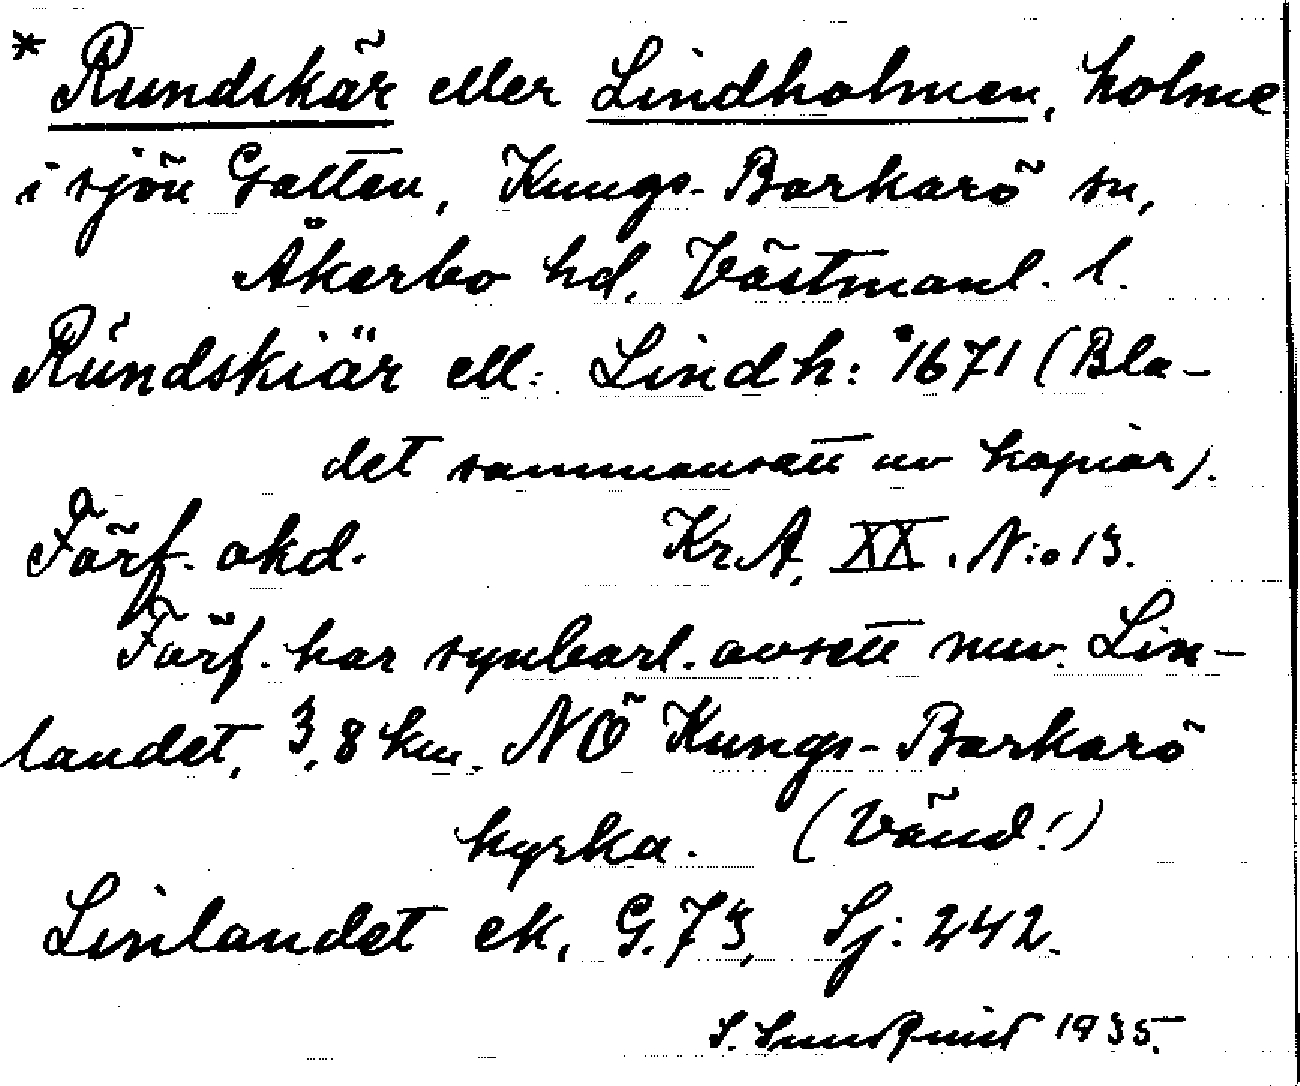 * Rundskär eller Lindholmen, holme
i sjön Galten, Kungs-Barkarö sn,
Åkerbo hd, Västmanl. l.
Rundskiär ell: Lindh: 1671 (Bla-
det sammansatt av kopior).
Förf. okd. Kr.A. XX. N:o 13.
Förf. har synbarl. avsett nuv. Lin-
landet, 3,8 km. NÖ Kungs-Barkarö
kyrka. (Vänd!)
Linlandet ek, G.73, Sj: 242.
S. Lundqvist 1935.